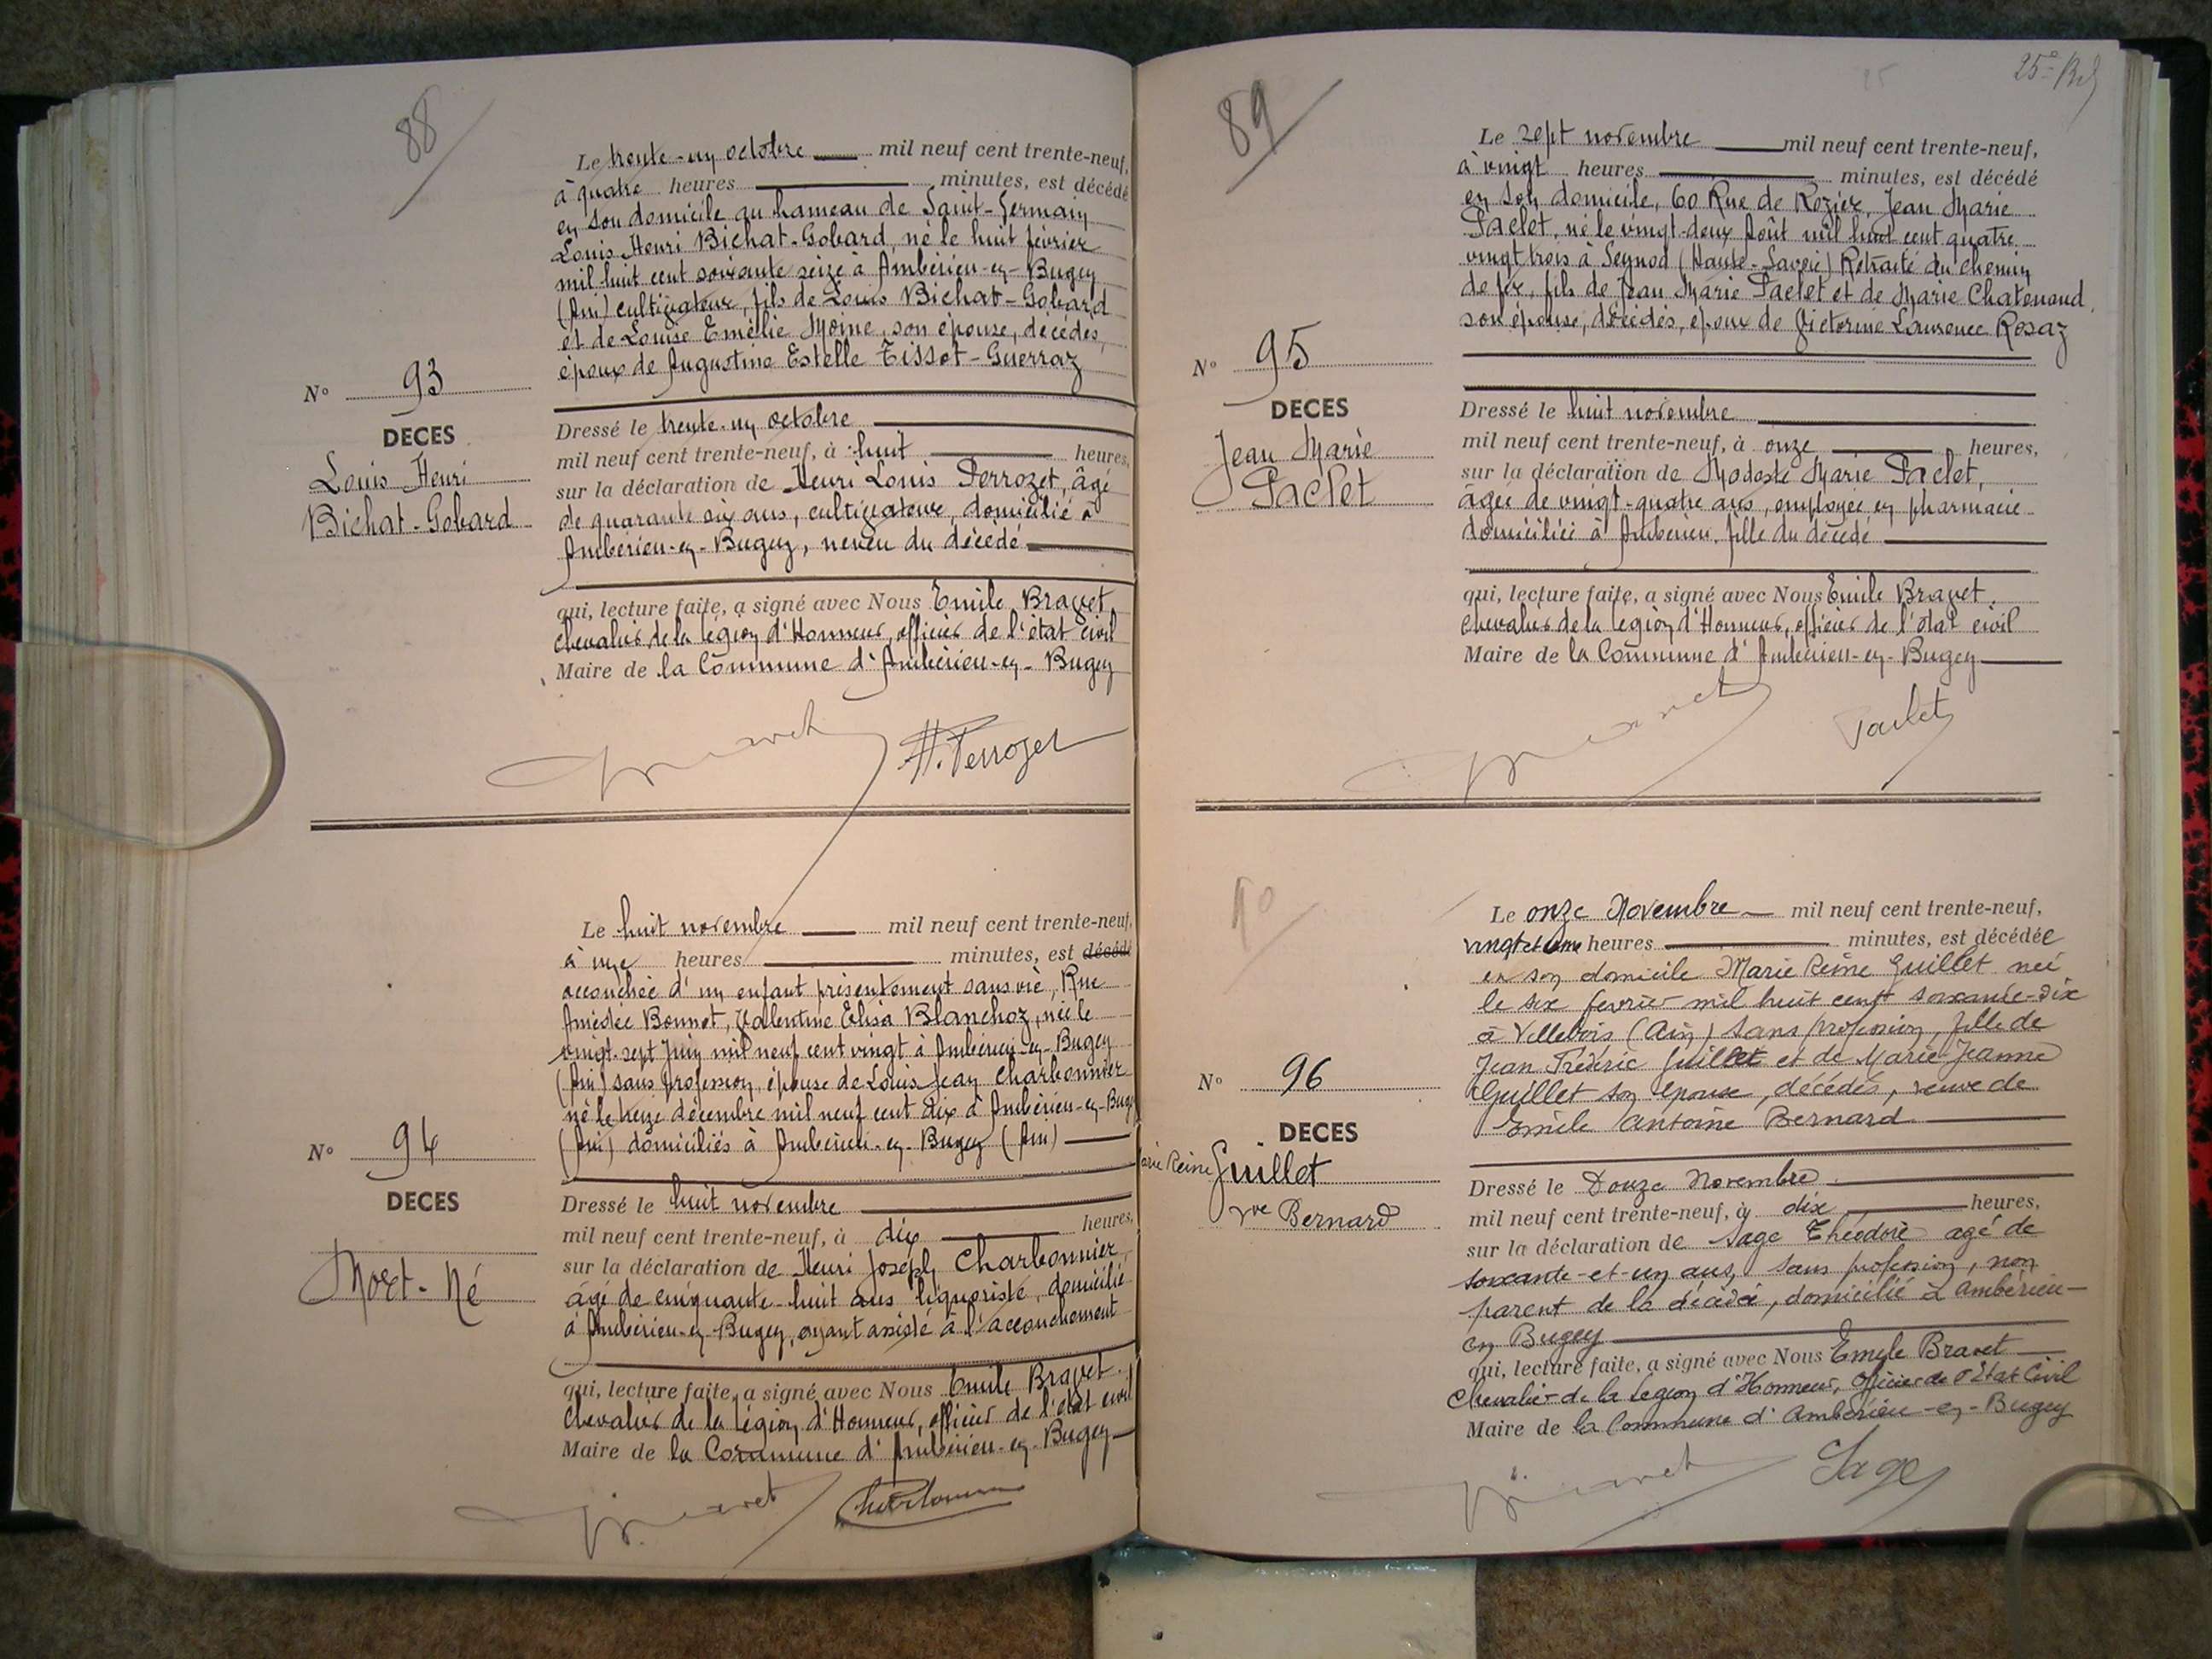 88
Le trente-un octobre mil neuf cent trente-neuf,
à quatre heures minutes, est décédé
en son domicile au hameau de Saint-Germain
Louis Henri Bichat-Gobard, né le huit février
mil huit cent soixante seize à Ambérieu-en-Bugey
(Ain) cultivateur, fils de Louis Bichat-Gobard
et de Louise Emélie Moine, son épouse, décédés,
époux de Augustine Estelle Tissot-Guerraz
N° 93
DECES
Louis Henri
Bichat-Gobard
Dressé le trente-un octobre
mil neuf cent trente-neuf, à huit heures,
sur la déclaration de Henri Louis Perrozet, âgé
de quarante six ans, cultivateur, domicilié à
Ambérieu-en-Bugey, neveu du décédé
qui, lecture faite, a signé avec Nous Emile Bravet,
chevalier de la légion d'Honneur, officier de l'état civil
Maire de la Commune d'Ambérieu-en-Bugey
Bravet H. Perrozet
Le huit novembre mil neuf cent trente-neuf,
à une heures minutes, est décédé
accouchée d'un enfant présentement sans vie, Rue
Amédée Bonnet, Valentine Elisa Blanchoz, née le
vingt-sept Juin mil neuf cent vingt à Ambérieu-en-Bugey
(Ain) sans profession, épouse de Louis Jean Charbonnier
né le treize décembre mil neuf cent dix à Ambérieu-en-Bugey
(Ain) domiciliés à Ambérieu-en-Bugey (Ain)
N° 94
DECES
Mort-Né
Dressé le huit novembre
mil neuf cent trente-neuf, à dix heures,
sur la déclaration de Henri Joseph Charbonnier
âgé de cinquante-huit ans liquoriste, domicilié
à Ambérieu-en-Bugey, ayant assisté à l'accouchement
qui, lecture faite, a signé avec Nous Emile Bravet.
Chevalier de la Légion d'Honneur, officier de l'état civil
Maire de la Commune d'Ambérieu-en-Bugey
Bravet Charbonnier
89
Le sept novembre mil neuf cent trente-neuf,
à vingt heures minutes, est décédé
en son domicile, 60 Rue de Rozier, Jean Marie
Paclet, né le vingt-deux Août mil huit cent quatre
vingt trois à Seynod (Haute-Savoie) Retraité du chemin
de fer, fils de Jean Marie Paclet et de Marie Chatenoud,
son épouse, décédés, époux de Victorine Laurence Rosaz
N° 95
DECES
Jean Marie
Paclet
Dressé le huit novembre
mil neuf cent trente-neuf, à onze heures,
sur la déclaration de Modeste Marie Paclet,
âgée de vingt-quatre ans, employée en pharmacie
domiciliée à Ambérieu, fille du décédé
qui, lecture faite, a signé avec Nous Emile Bravet.
Chevalier de la légion d'Honneur, officier de l'état civil
Maire de la Commune d'Ambérieu-en-Bugey
Bravet Paclet
90
Le onze Novembre mil neuf cent trente-neuf,
vingt et une heures minutes, est décédée
en son domicile Marie Reine Guillet née
le six fevrier mil huit cent soixante-dix
à Villebois (Ain) sans profession, fille de
Jean Frédéric Guillet et de Marie Jeanne
Guillet son épouse, décédés, veuve de
Emile Antoine Bernard
N° 96
DECES
Marie Reine Guillet
vve Bernard
Dressé le Douze Novembre
mil neuf cent trente-neuf, à dix heures,
sur la déclaration de Sage Théodore agé de
soixante-et-un ans, sans profession, non
parent de la décédée, domicilié à Ambérieu-
en Bugey
qui, lecture faite, a signé avec Nous Emile Bravet
Chevalier de la Légion d'Honneur, Officier de l'Etat Civil
Maire de la Commune d'Ambérieu-en-Bugey
Bravet Sage